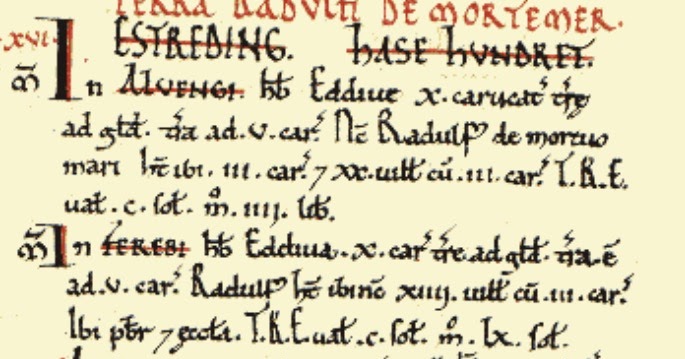 TERRA RADULFI DE MORTEMER.
XVI. ESTREDING. HASE HUNDRET.
M̃ In ALVENGI. hb̄ Eddiue x. carucat' tr̄ę
ad gld̄. tr̄a ad. v. car'. Nc̄ Radulf' de mortuo
mari hr̄ ibi. iii. car'. ⁊ xx. uill̄ cū. iii. car'. T.R.E.
ual̄. c. sol̄. m̊. iiii. lib̄.
M̃ In FERESBI hb̄ Eddiua. x. car' tr̄e ad gld̄. tr̄a. ē
ad. v. car'. Radulf' hc̄ ibi nc̄ xiiii. uill̄ cū. iii. car'.
Ibi pbr̄ ⁊ ęccla. T.R.E. ual̄. c. sol̄. m̊. lx. sol̄.